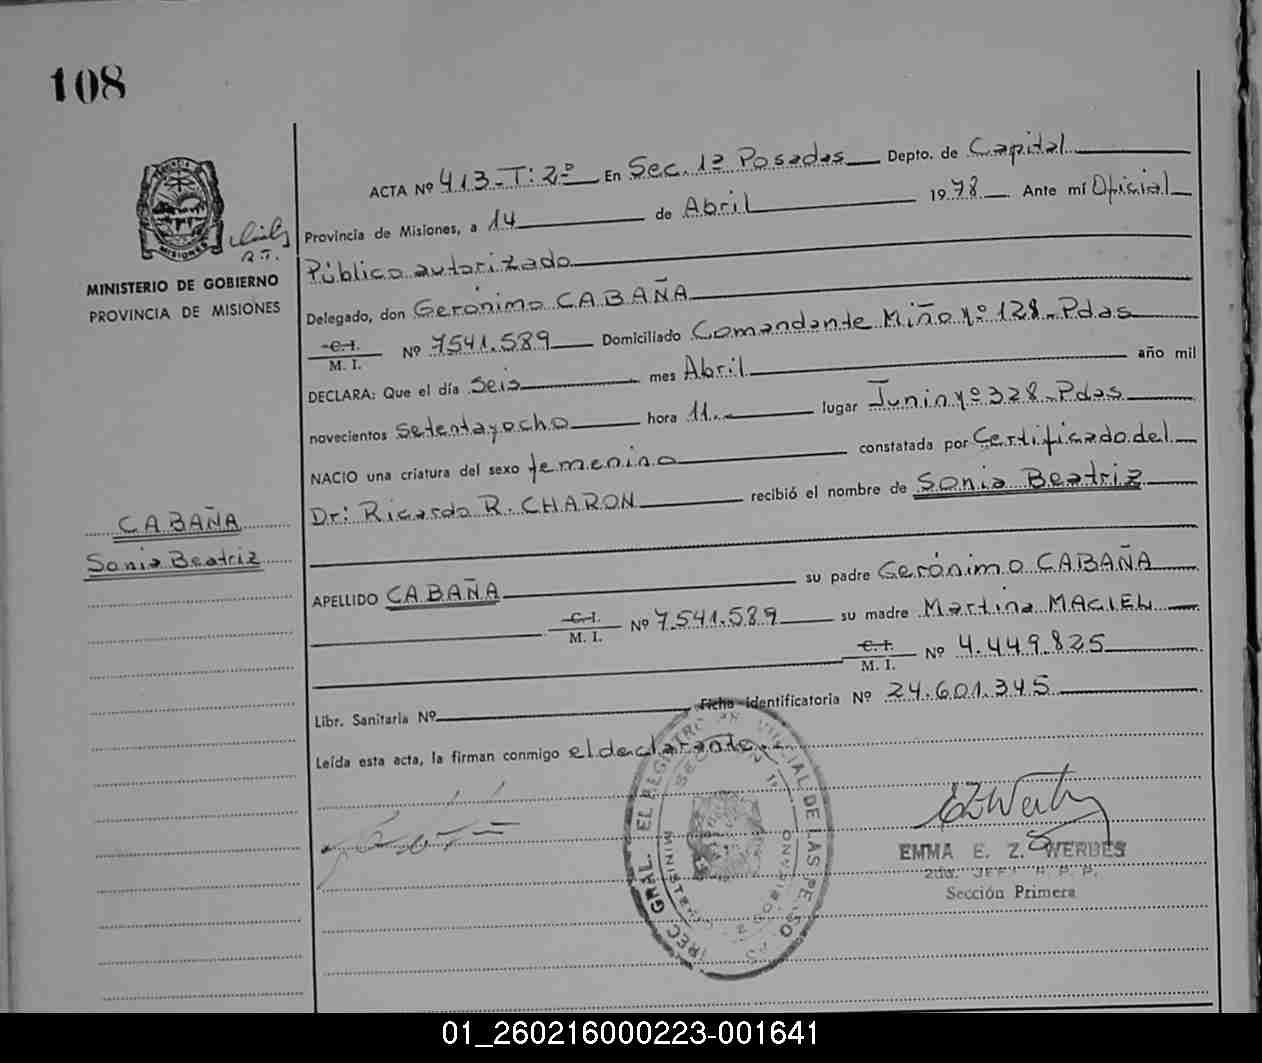 108
ACTA Nº 413-T:2º En Sec. 1ª Posadas Depto. de Capital
Provincia de Misiones, a 14 de Abril 1978 Ante mí Oficial
Público autorizado
Delegado, don Gerónimo CABAÑA
C.I. M. I. Nº 7541.589 Domiciliado Comandante Miño Nº 128-Pdas
DECLARA: Que el día Seis mes Abril año mil
novecientos Setentayocho hora 11.- lugar Junin Nº 328-Pdas
NACIO una criatura del sexo femenino constatada por Certificado del
Dr: Ricardo R. CHARON recibió el nombre de Sonia Beatriz
APELLIDO CABAÑA su padre Gerónimo CABAÑA
C.I. M. I. Nº 7.541.589 su madre Martina MACIEL
C.I. M. I. Nº 4.449.825
Libr. Sanitaria Nº Ficha identificatoria Nº 24.601.345
Leída esta acta, la firman conmigo el declarante.-
MINISTERIO DE GOBIERNO
PROVINCIA DE MISIONES
CABAÑA
Sonia Beatriz
EMMA E. Z. WERBES
2da. JEFE R. P. P.
Sección Primera
01_260216000223-001641